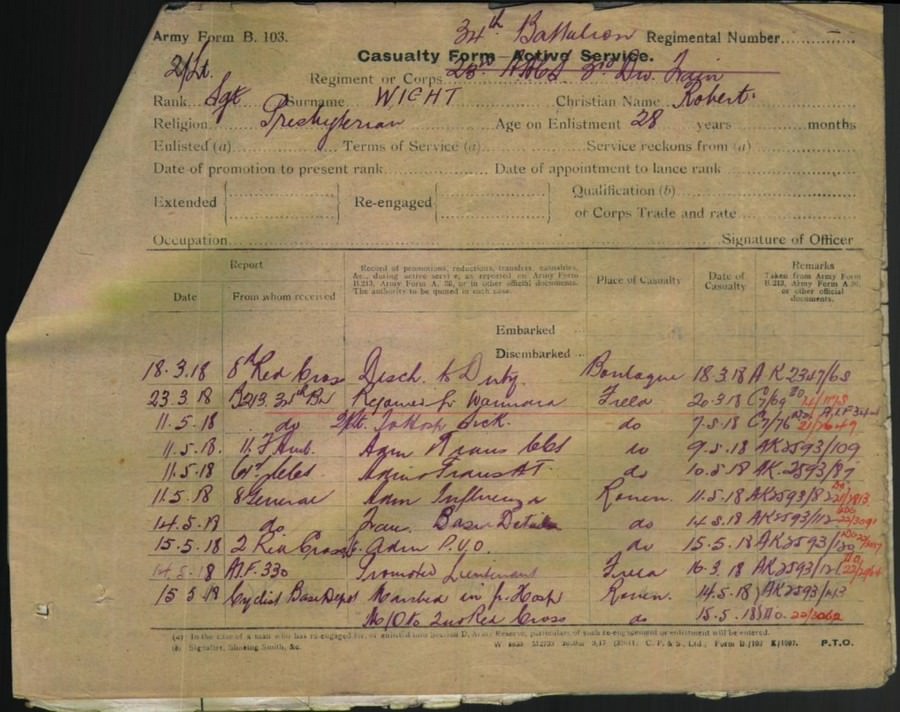 34th Battalion
Army Form B. 103. Regimental Number
Casualty Form—Active Service.
2/Lt.
Regiment or Corps 3rd Div. Train
Rank Sgt Surname WIGHT Christian Name Robert.
Religion Presbyterian Age on Enlistment 28 years months
Enlisted (a) Terms of Service (a) Service reckons from (a)
Date of promotion to present rank Date of appointment to lance rank
Extended Re-engaged Qualification (b)
or Corps Trade and rate
Occupation Signature of Officer
Report
Date From whom received
Record of promotions, reductions, transfers, casualties,
&c., during active service, as reported on Army Form
B.213, Army Form A. 36, or in other official documents.
The authority to be quoted in each case.
Place of Casualty
Date of
Casualty
Remarks
Taken from Army Form
B.213, Army Form A.36,
or other official
documents.
Embarked
Disembarked
18.3.18 8th Red Cross Disch. to Duty. Boulogne 18.3.18 A.K.2347/68
23.3.18 B213. 34th Bn Rejoined fr Field 20.3.18 C7/69
11.5.18 do To Hosp Sick. do 7.5.18 C7/76 21/7649
11.5.18. 11. F Amb. Adm & Trans CCS do 9.5.18 AK2593/109
11.5.18 61st CCS. Adm & Trans AT do 10.5.18 AK.2593/87
11.5.18 8 General Adm Influenza Rouen. 11.5.18 AK2593/82
14.5.18 do Tran. Base Details do 14.5.18 AK2593/112 22/3091
15.5.18 2 Red Cross Adm P.U.O. do 15.5.18 AK2593/120
14.5.18 A.I.F. 330 Promoted Lieutenant Field 16.3.18 AK2593/121
15.5.18 Cyclist Base Depot Marched in fr. Hosp Rouen. 14.5.18 AK2593/143
M/O to 2nd Red Cross do 15.5.18 Do. 22/3062
(a) In the case of a man who has re-engaged for, or enlisted into Section D, Army Reserve, particulars of such re-engagement or enlistment will be entered.
(b) Signaller, Shoeing Smith, &c. P.T.O.